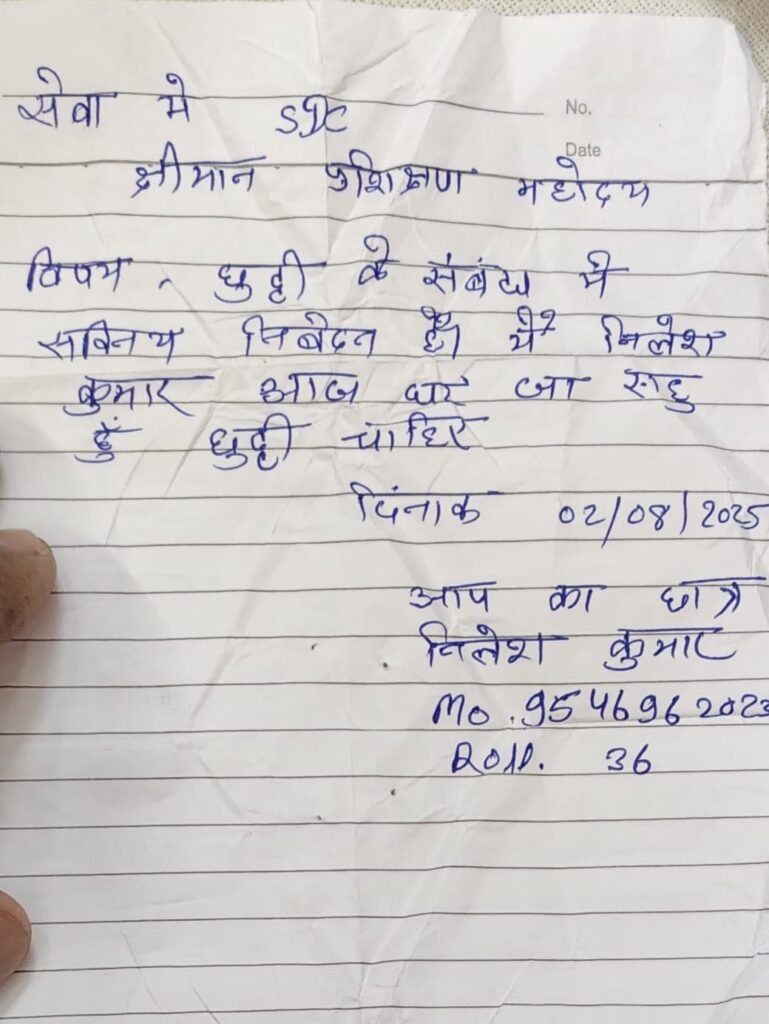 सेवा मे SDC
No.
Date
श्रीमान प्रशिक्षण महोदय
विषय - छुट्टी के संबंध मे
सविनय निवेदन है। मैं निलेश
कुमार आज घर जा रहा हु
हुँ छुट्टी चाहिए
दिंनाक 02/08/2025
आप का छात्र
निलेश कुमार
Mo. 9546962023
Roll. 36